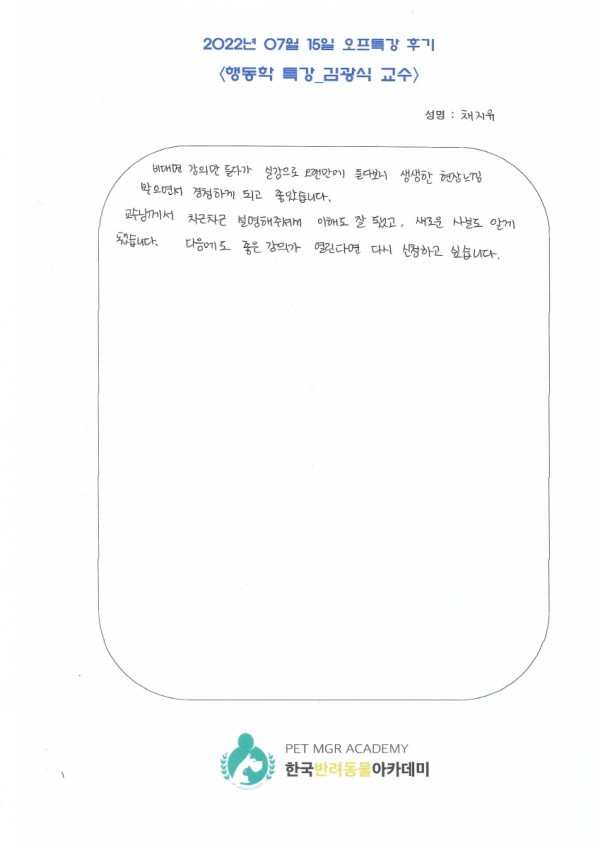 2022년 07월 15일 오프특강 후기
<행동학 특강_김광식 교수>
성명 : 채지유
비대면 강의만 듣다가 실강으로 오랜만에 듣다보니 생생한 현장느낌
받으면서 경청하게 되고 좋았습니다.
교수님께서 차근차근 설명해주셔서 이해도 잘 됐었고, 새로운 사실도 알게
됐습니다. 다음에도 좋은 강의가 열린다면 다시 신청하고 싶습니다.
PET MGR ACADEMY
한국반려동물아카데미